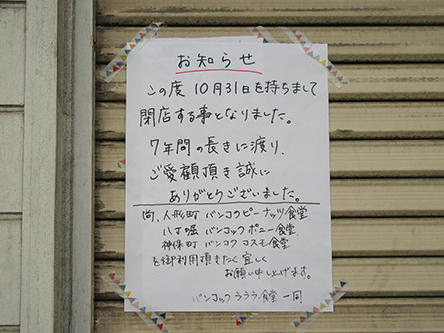 お知らせ
この度 10月31日を持ちまして
閉店する事となりました。
7年間の長きに渡り、
ご愛顧頂き誠に
ありがとうございました。
尚、人形町 バンコクピーナッツ食堂
八丁堀 バンコックポニー食堂
神保町 バンコックコスモ食堂
を御利用頂きたく宜しく
お願い申し上げます。
バンコックラララ食堂 一同